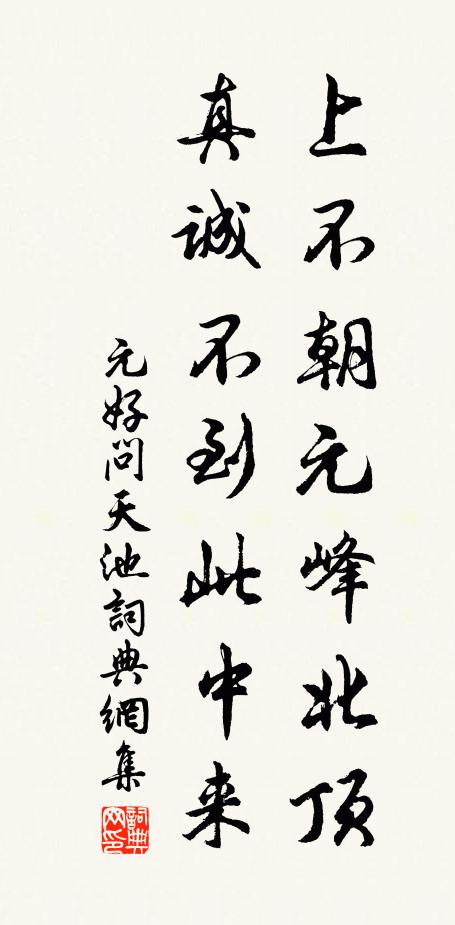 上不朝元峰北顶
真诚不到此中来
元好問天池詞典網集
詞典网印